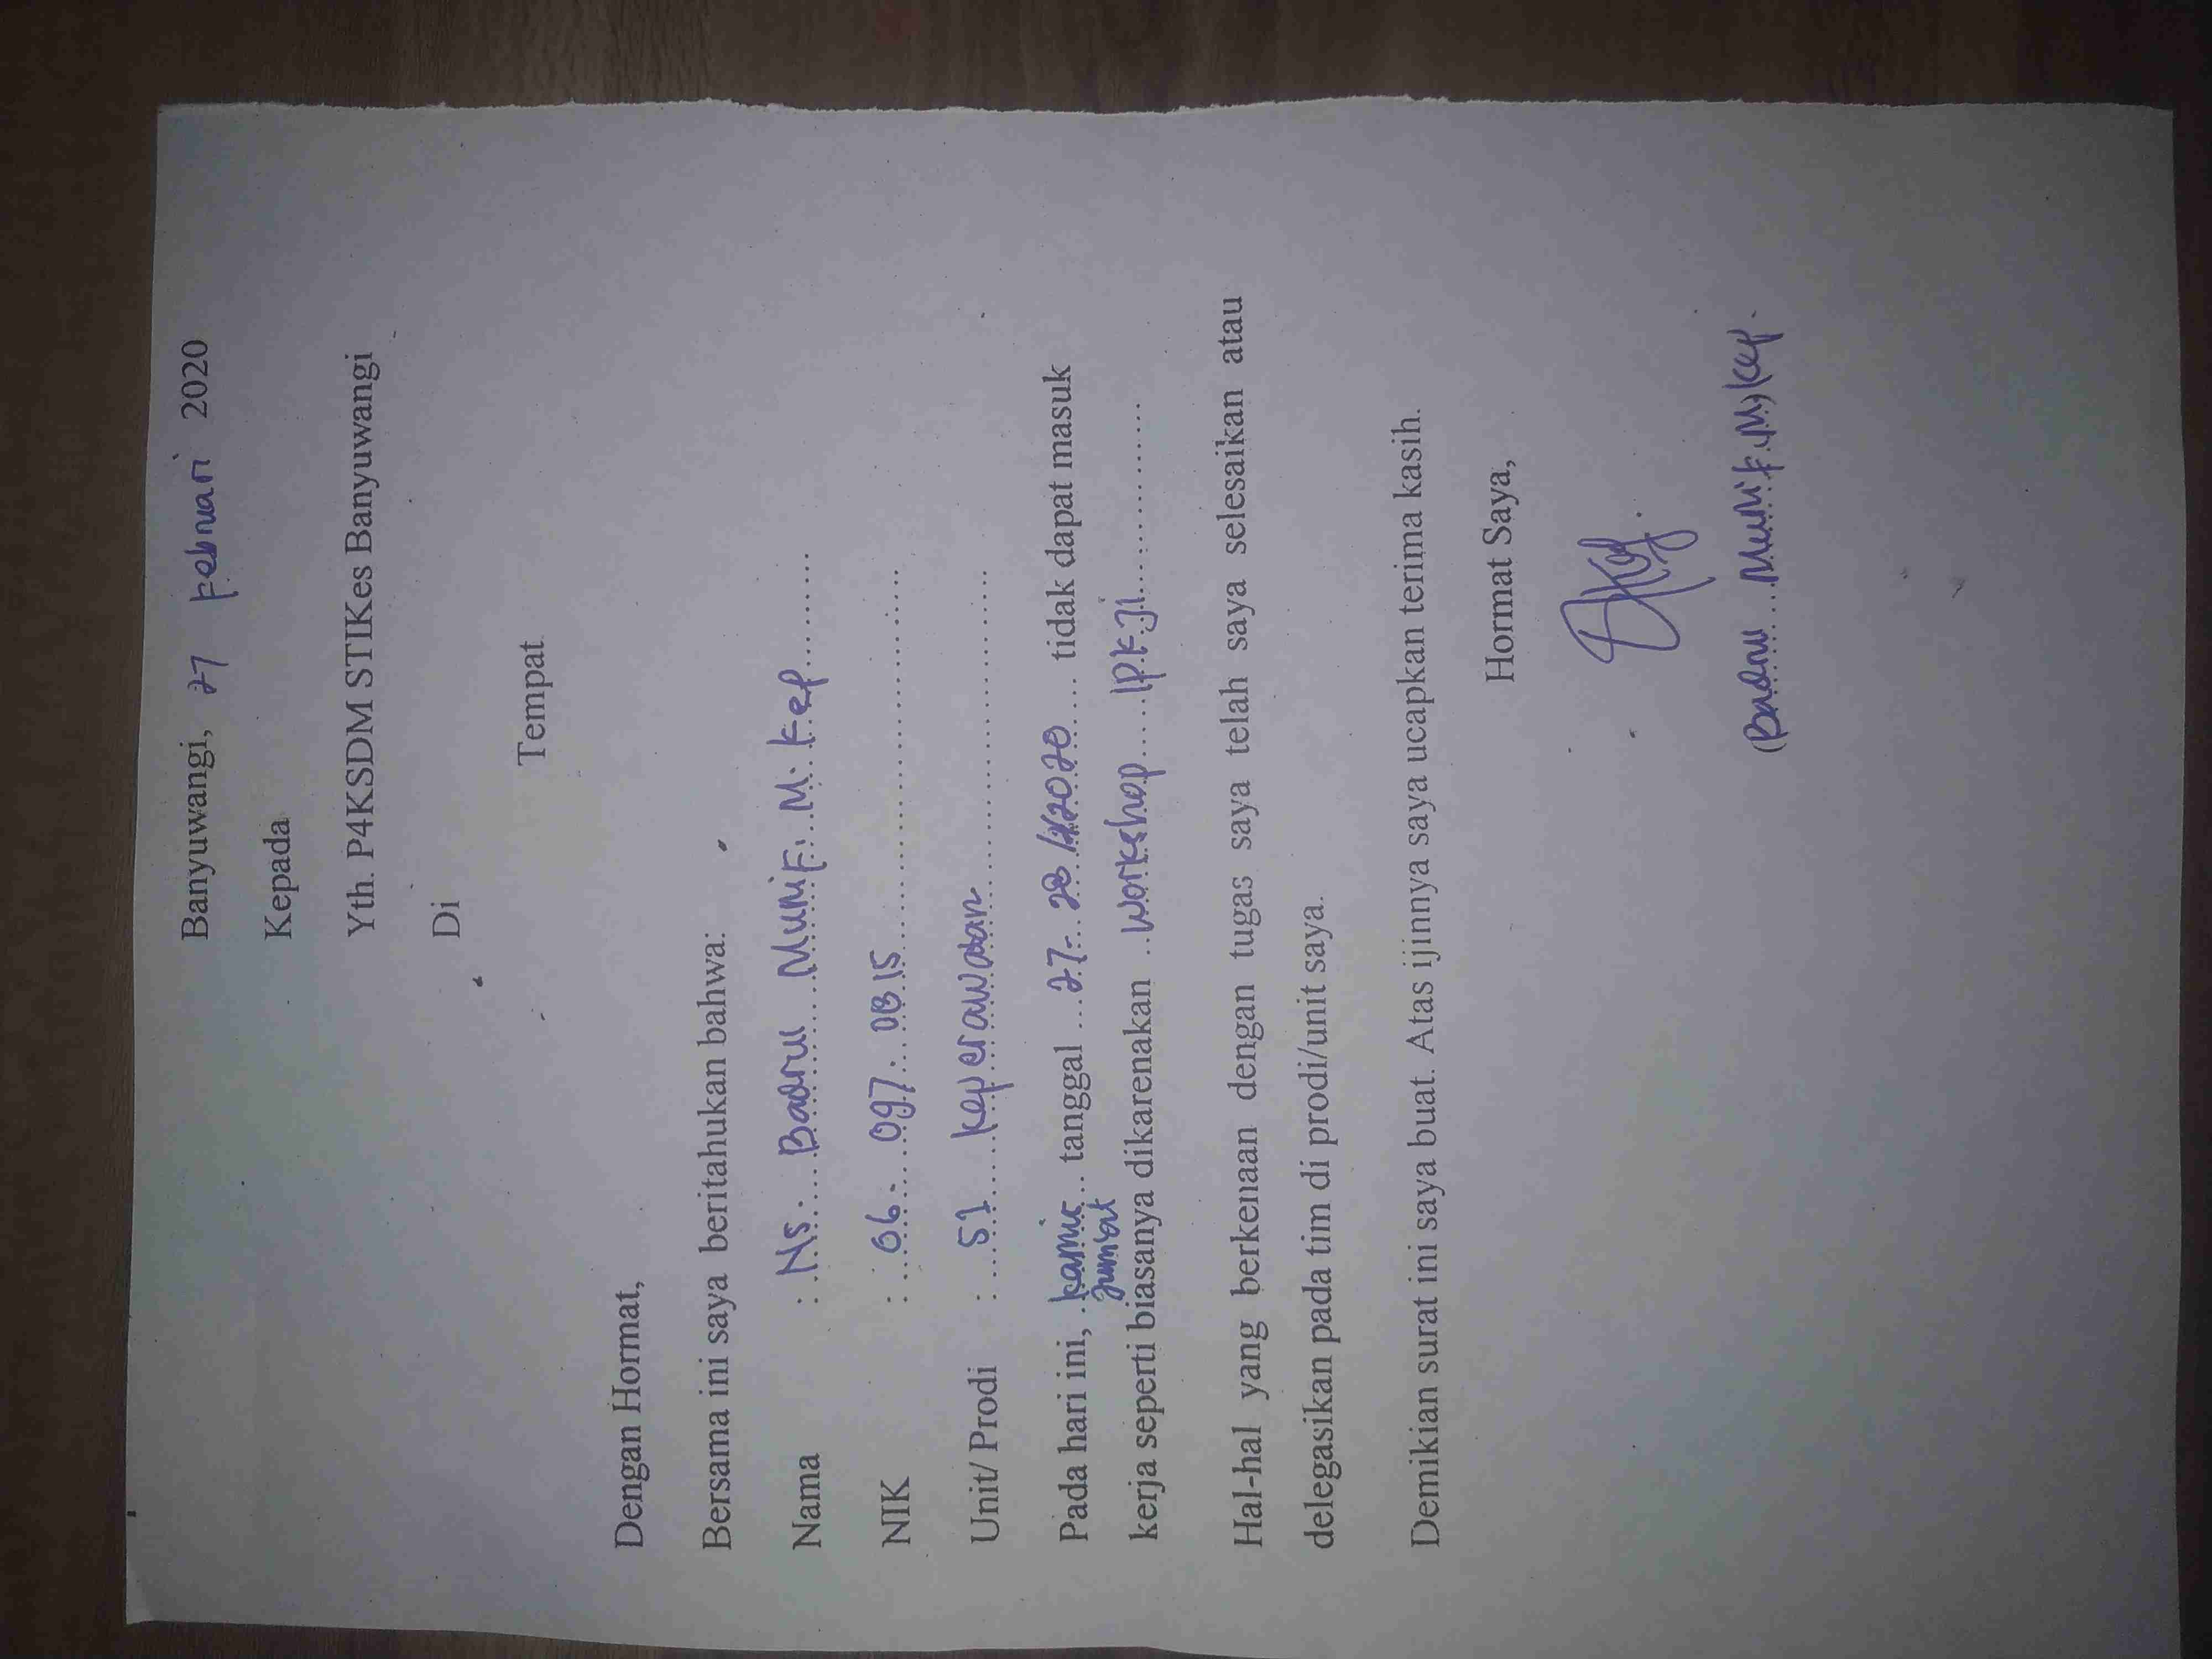 Banyuwangi, 27 Februari 2020
Kepada
Yth. P4KSDM STIKes Banyuwangi
Di
Tempat
Dengan Hormat,
Bersama ini saya beritahukan bahwa:
Nama : Ns. Badrul Munif. M. Kep
NIK : 06. 097. 0815
Unit/ Prodi : S1 Keperawatan
Pada hari ini, kamis tanggal 27- 28 /2/2020 tidak dapat masuk
Jumat
kerja seperti biasanya dikarenakan Workshop IPKJI
Hal-hal yang berkenaan dengan tugas saya telah saya selesaikan atau
delegasikan pada tim di prodi/unit saya.
Demikian surat ini saya buat. Atas ijinnya saya ucapkan terima kasih.
Hormat Saya,
(Badrul Munif. M) Kep.